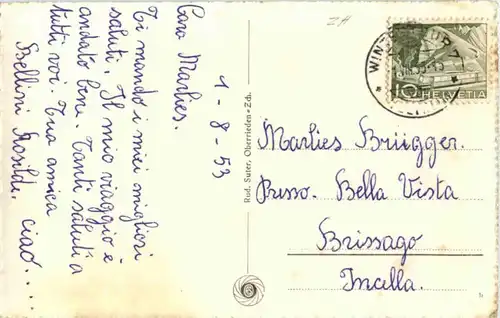 1-8-53
Cara Marlies.
Ti mando i miei migliori
saluti. Il mio viaggio è
andato bene. Tanti saluti a
tutti voi. Tua amica
Bellini Rosilde. ciao....
Rud. Suter, Oberrieden-Zch.
WINTERTHUR 1
10 HELVETIA
Marlies Brügger.
Presso. Bella Vista
Brissago
Incella.